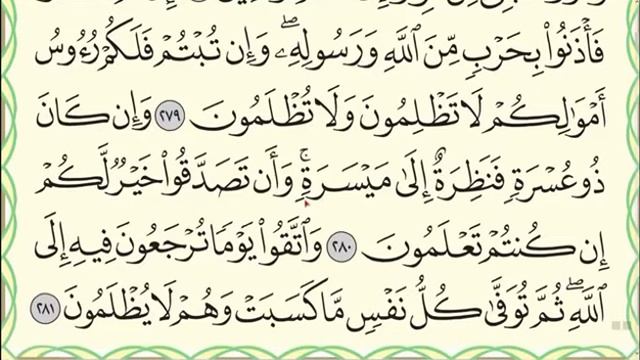 فَأْذَنُوا۟ بِحَرْبٍ مِّنَ ٱللَّهِ وَرَسُولِهِۦ ۖ وَإِن تُبْتُمْ فَلَكُمْ رُءُوسُ
أَمْوَٰلِكُمْ لَا تَظْلِمُونَ وَلَا تُظْلَمُونَ ٢٧٩ وَإِن كَانَ
ذُو عُسْرَةٍ فَنَظِرَةٌ إِلَىٰ مَيْسَرَةٍ ۚ وَأَن تَصَدَّقُوا۟ خَيْرٌ لَّكُمْ
إِن كُنتُمْ تَعْلَمُونَ ٢٨٠ وَٱتَّقُوا۟ يَوْمًا تُرْجَعُونَ فِيهِ إِلَى
ٱللَّهِ ۖ ثُمَّ تُوَفَّىٰ كُلُّ نَفْسٍ مَّا كَسَبَتْ وَهُمْ لَا يُظْلَمُونَ ٢٨١